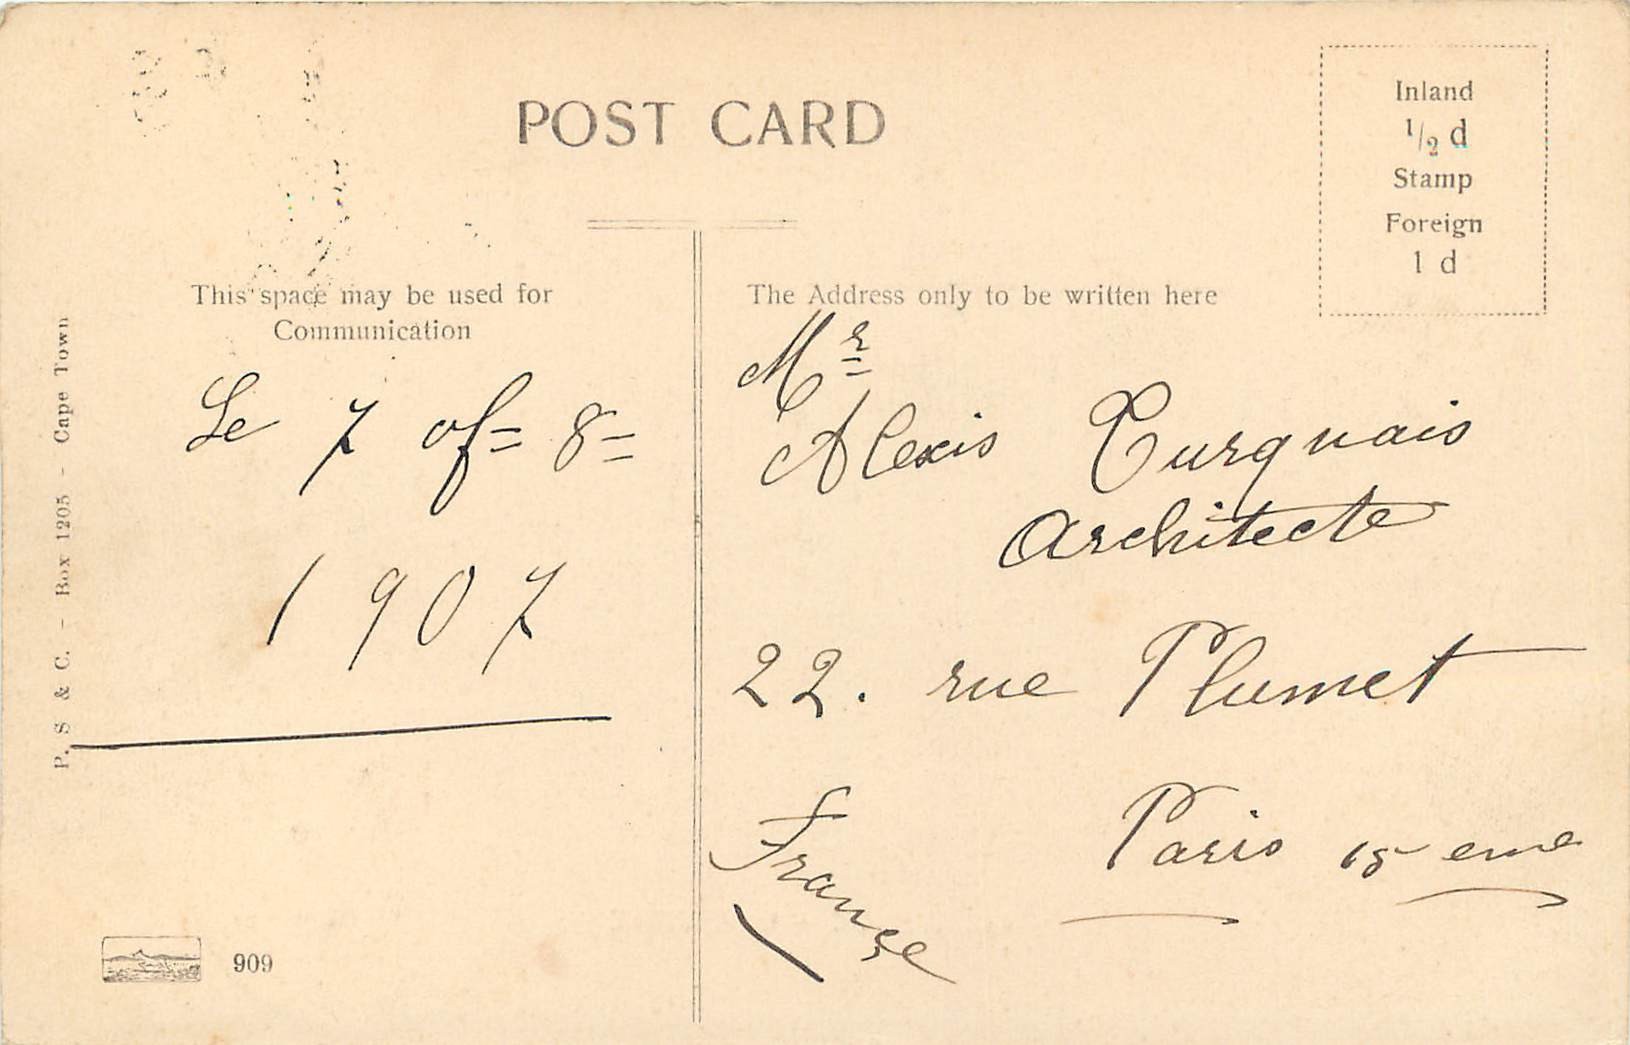 POST CARD
Inland
1/2 d
Stamp
Foreign
1 d
This space may be used for
Communication
Le 7 of= 8=
1907
The Address only to be written here
Mr
Alexis Turquais
Architecte
22. rue Plumet
Paris 15 eme
Franse
P. S & C. - Box 1205 - Cape Town
909